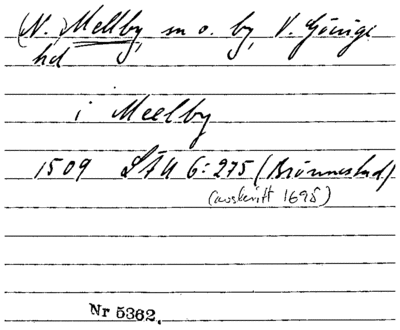 (N.) Mellby, sn o. by, V. Göinge
hd
i Meelby
1509 LÄU 6:275 (Brönnestad)
(avskrift 1695)
Nr 5362.